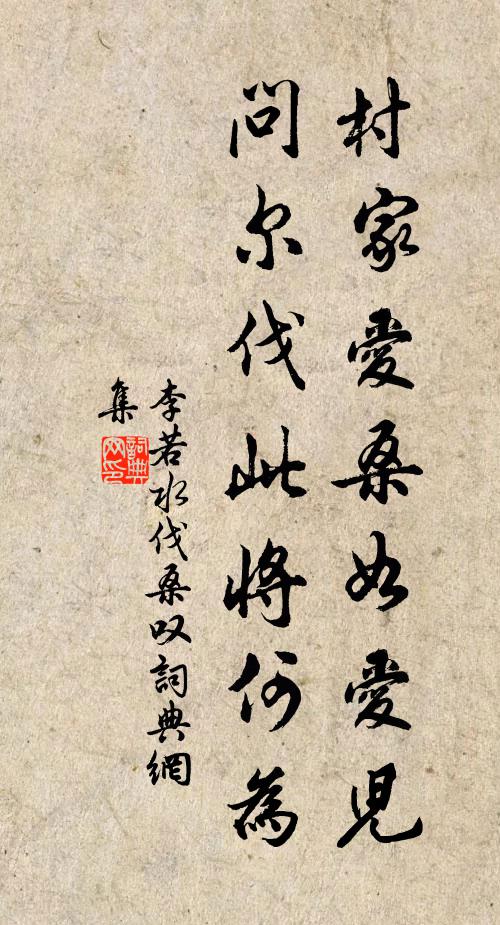 村家愛桑如愛児
問尔伐此將何為
李若水伐桑叹詞典網
集
詞典
网印